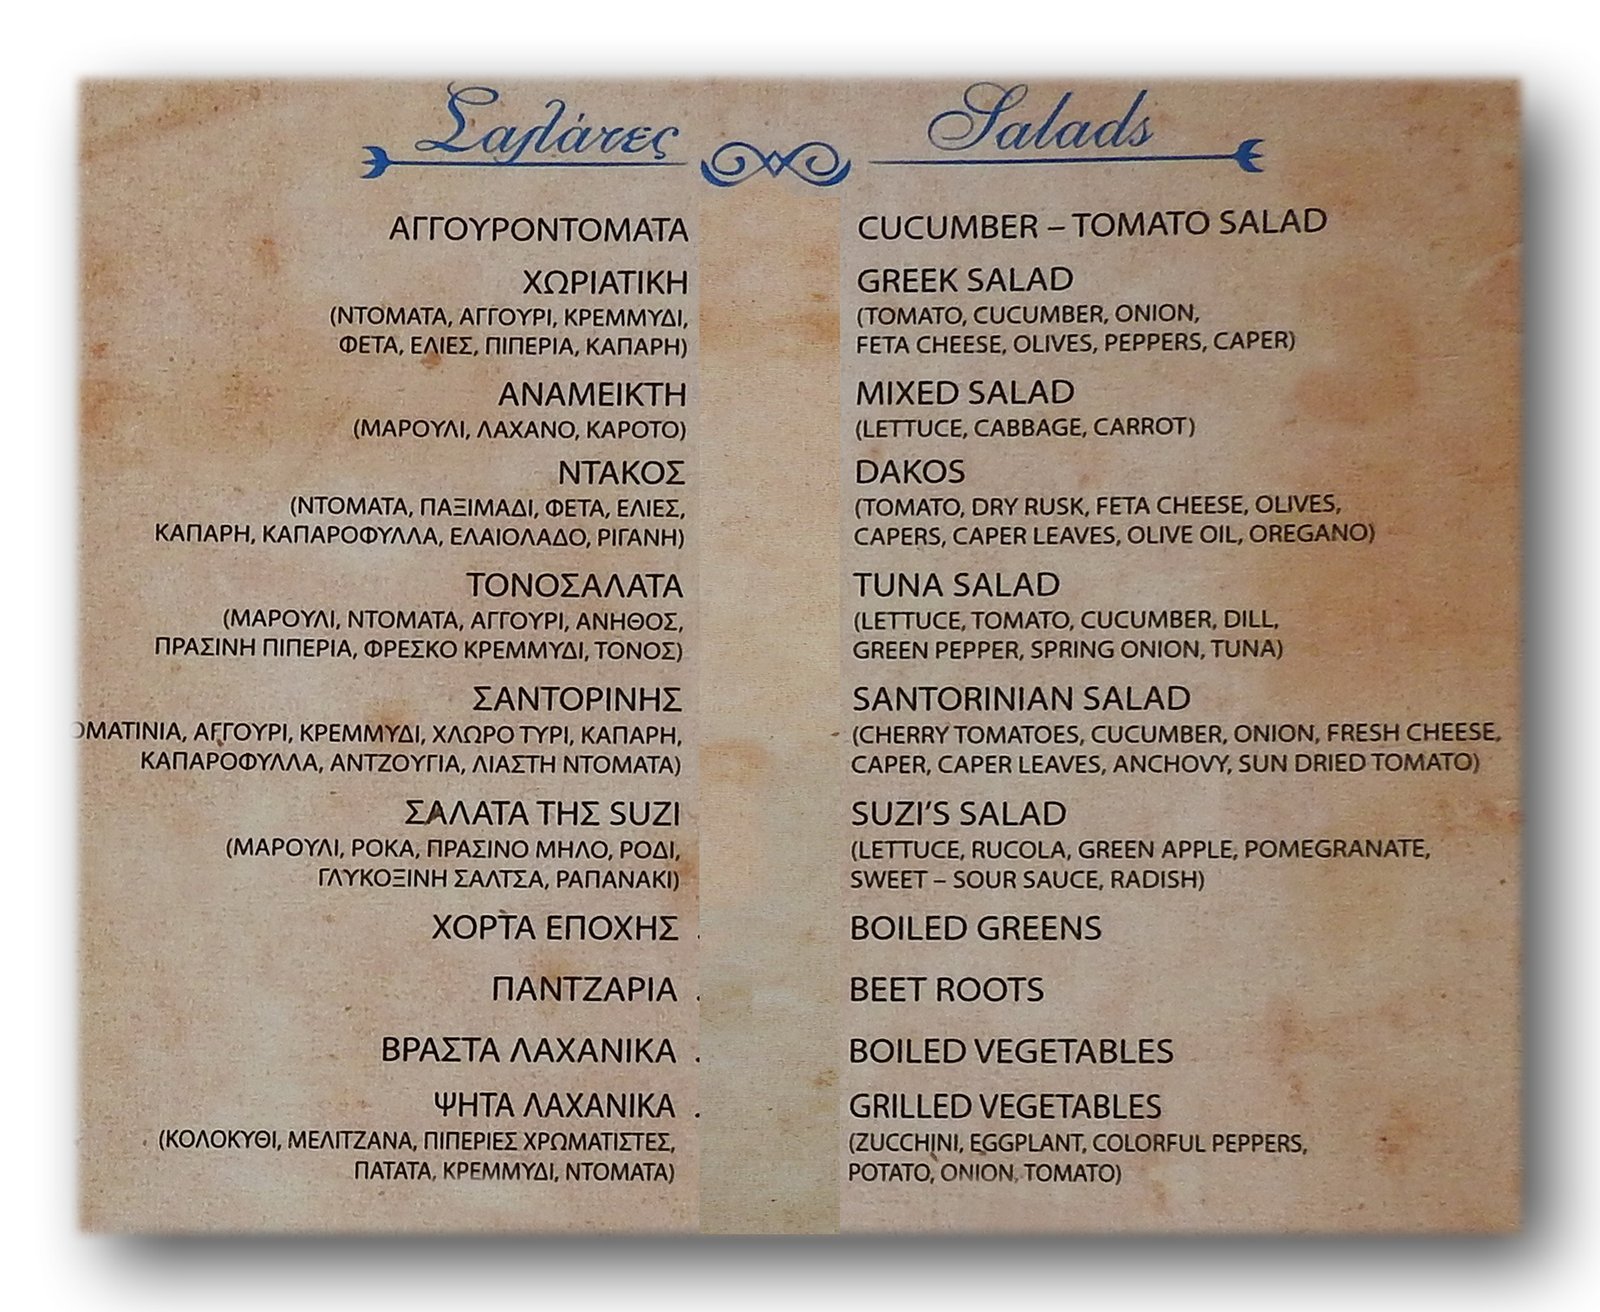 Σαλάτες
ΑΓΓΟΥΡΟΝΤΟΜΑΤΑ
ΧΩΡΙΑΤΙΚΗ
(ΝΤΟΜΑΤΑ, ΑΓΓΟΥΡΙ, ΚΡΕΜΜΥΔΙ,
ΦΕΤΑ, ΕΛΙΕΣ, ΠΙΠΕΡΙΑ, ΚΑΠΑΡΗ)
ΑΝΑΜΕΙΚΤΗ
(ΜΑΡΟΥΛΙ, ΛΑΧΑΝΟ, ΚΑΡΟΤΟ)
ΝΤΑΚΟΣ
(ΝΤΟΜΑΤΑ, ΠΑΞΙΜΑΔΙ, ΦΕΤΑ, ΕΛΙΕΣ,
ΚΑΠΑΡΗ, ΚΑΠΑΡΟΦΥΛΛΑ, ΕΛΑΙΟΛΑΔΟ, ΡΙΓΑΝΗ)
ΤΟΝΟΣΑΛΑΤΑ
(ΜΑΡΟΥΛΙ, ΝΤΟΜΑΤΑ, ΑΓΓΟΥΡΙ, ΑΝΗΘΟΣ,
ΠΡΑΣΙΝΗ ΠΙΠΕΡΙΑ, ΦΡΕΣΚΟ ΚΡΕΜΜΥΔΙ, ΤΟΝΟΣ)
ΣΑΝΤΟΡΙΝΗΣ
ΟΜΑΤΙΝΙΑ, ΑΓΓΟΥΡΙ, ΚΡΕΜΜΥΔΙ, ΧΛΩΡΟ ΤΥΡΙ, ΚΑΠΑΡΗ,
ΚΑΠΑΡΟΦΥΛΛΑ, ΑΝΤΖΟΥΓΙΑ, ΛΙΑΣΤΗ ΝΤΟΜΑΤΑ)
ΣΑΛΑΤΑ ΤΗΣ SUZI
(ΜΑΡΟΥΛΙ, ΡΟΚΑ, ΠΡΑΣΙΝΟ ΜΗΛΟ, ΡΟΔΙ,
ΓΛΥΚΟΞΙΝΗ ΣΑΛΤΣΑ, ΡΑΠΑΝΑΚΙ)
ΧΟΡΤΑ ΕΠΟΧΗΣ .
ΠΑΝΤΖΑΡΙΑ .
ΒΡΑΣΤΑ ΛΑΧΑΝΙΚΑ .
ΨΗΤΑ ΛΑΧΑΝΙΚΑ .
(ΚΟΛΟΚΥΘΙ, ΜΕΛΙΤΖΑΝΑ, ΠΙΠΕΡΙΕΣ ΧΡΩΜΑΤΙΣΤΕΣ,
ΠΑΤΑΤΑ, ΚΡΕΜΜΥΔΙ, ΝΤΟΜΑΤΑ)
Salads
CUCUMBER – TOMATO SALAD
GREEK SALAD
(TOMATO, CUCUMBER, ONION,
FETA CHEESE, OLIVES, PEPPERS, CAPER)
MIXED SALAD
(LETTUCE, CABBAGE, CARROT)
DAKOS
(TOMATO, DRY RUSK, FETA CHEESE, OLIVES,
CAPERS, CAPER LEAVES, OLIVE OIL, OREGANO)
TUNA SALAD
(LETTUCE, TOMATO, CUCUMBER, DILL,
GREEN PEPPER, SPRING ONION, TUNA)
SANTORINIAN SALAD
(CHERRY TOMATOES, CUCUMBER, ONION, FRESH CHEESE,
CAPER, CAPER LEAVES, ANCHOVY, SUN DRIED TOMATO)
SUZI'S SALAD
(LETTUCE, RUCOLA, GREEN APPLE, POMEGRANATE,
SWEET – SOUR SAUCE, RADISH)
BOILED GREENS
BEET ROOTS
BOILED VEGETABLES
GRILLED VEGETABLES
(ZUCCHINI, EGGPLANT, COLORFUL PEPPERS,
POTATO, ONION, TOMATO)